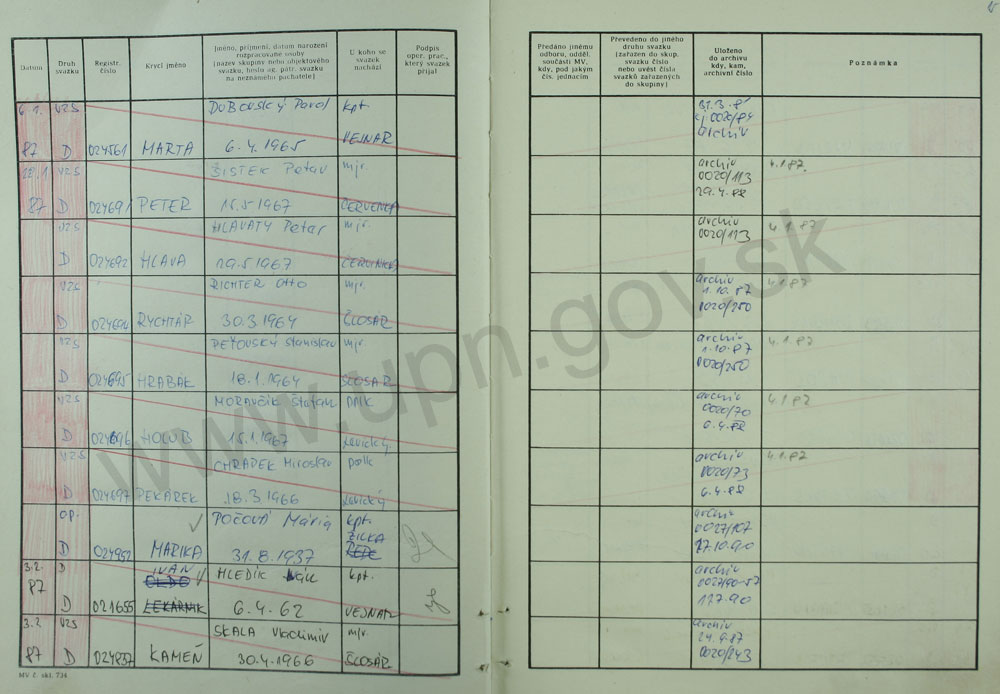 Datum
Druh svazku
Registr. číslo
Krycí jméno
Jméno, příjmení, datum narození rozpracované osoby (název skupiny nebo objektového svazku, heslo ag. pátr. svazku na neznámého pachatele)
U koho se svazek nachází
Podpis oper. prac., který svazek přijal
Předáno jinému odboru, odděl. součásti MV, kdy, pod jakým čís. jednacím
Převedeno do jiného druhu svazku (zařazen do skup. svazku číslo nebo uvést čísla svazků zařazených do skupiny)
Uloženo do archivu kdy, kam, archivní číslo
Poznámka
6.1. VZS DUBOVSKÝ Pavol kpt.
87 D 024561 MARTA 6.4.1965 VEJNAR
0020/84
archiv
VZS ŠISTEK Peter mjr.
87 D 024691 PETER 15.5.1967 ČERVENKA
archiv 4.1.87.
0020/113
29.4.88
VZS HLAVATÝ Peter mjr.
D 024692 HLAVA 19.5.1967 ČERVENKA
archiv 4.1.87
0020/113
VZS RICHTER Otto mjr.
D RYCHTÁR 30.3.1964 ČLOSÁR
archiv 4.1.87
1.10.87
0020/250
VZS Stanislav mjr.
D 024695 HRABÁK 18.1.1964
archiv 4.1.87
1.10.87
0020/250
VZS MORAVČÍK Štefan
D HOLUB 15.1.1967 Levický
archiv 4.1.87
0020/70
6.4.88
VZS CHRAPEK Miroslav pplk
D 024697 PEKÁREK 18.3.1966 Levický
archiv 4.1.87
0020/73
6.4.88
OP. POČOVÁ Mária kpt.
ŽILKA
D 024952 MARIKA 31.8.1937
archiv
0027/107
27.10.90
3.2. D IVAN HLEDÍK kpt.
87
D 021655 LEKÁRNIK 6.4.62 VEJNAR
archiv
3.2 VZS SKALA Vladimír mjr.
87 D 024937 KAMEŇ 30.4.1966 ČLOSÁR
archiv
24.9.87
0020/243
MV č. skl. 734
www.upn.gov.sk